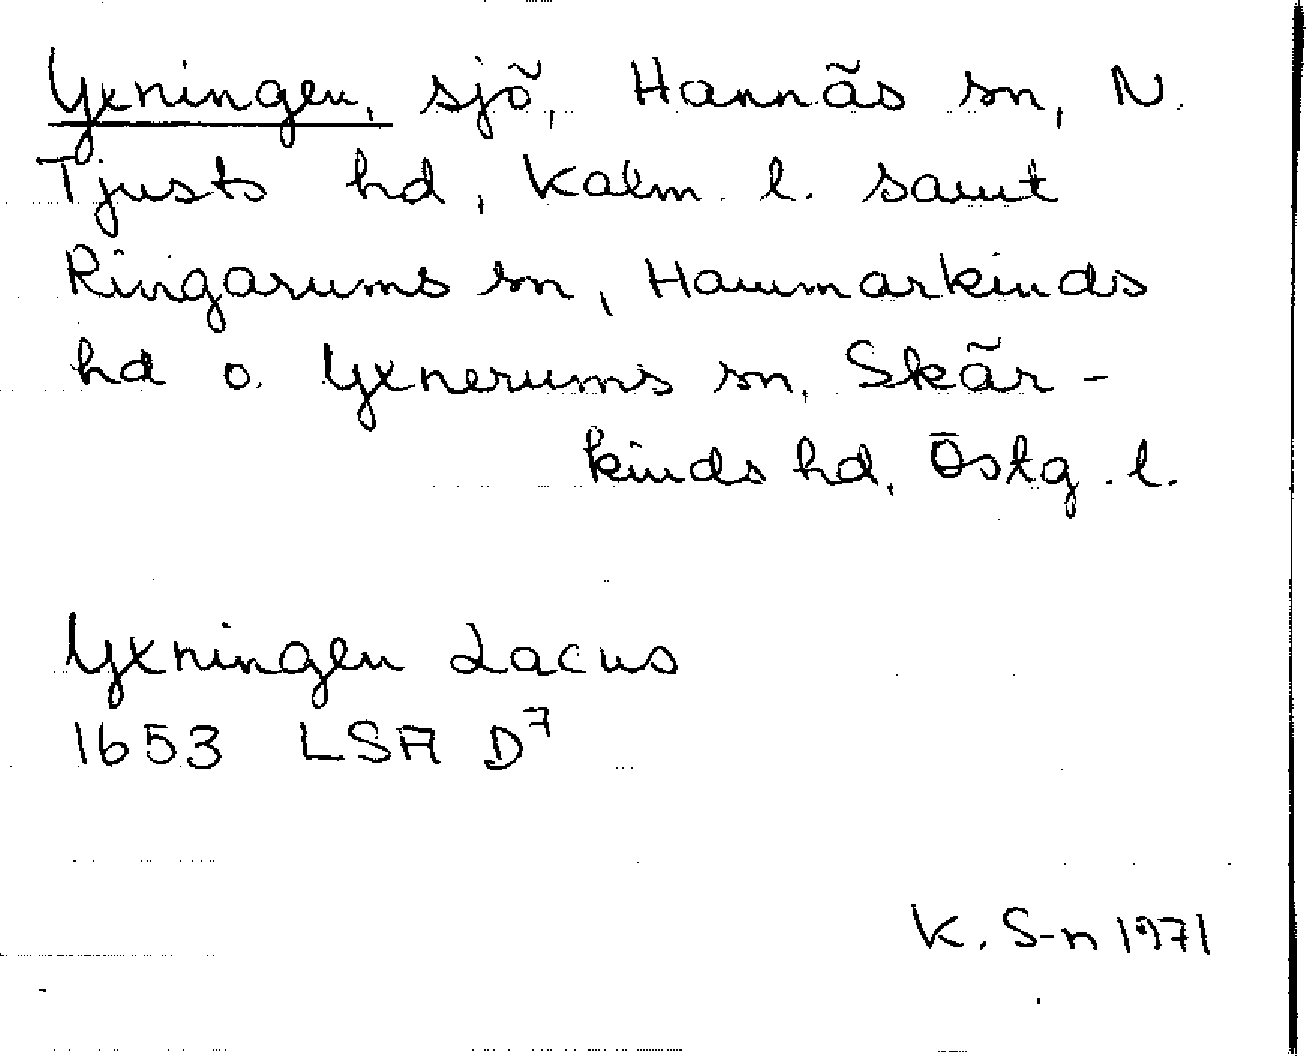 Yxningen, sjö, Hannäs sn, N.
Tjusts hd, Kalm. l. samt
Ringarums sn, Hammarkinds
hd o. Yxnerums sn, Skär-
kinds hd, Östg. l.
Yxningen Lacus
1653 LSA D⁷
K. S-n 1971